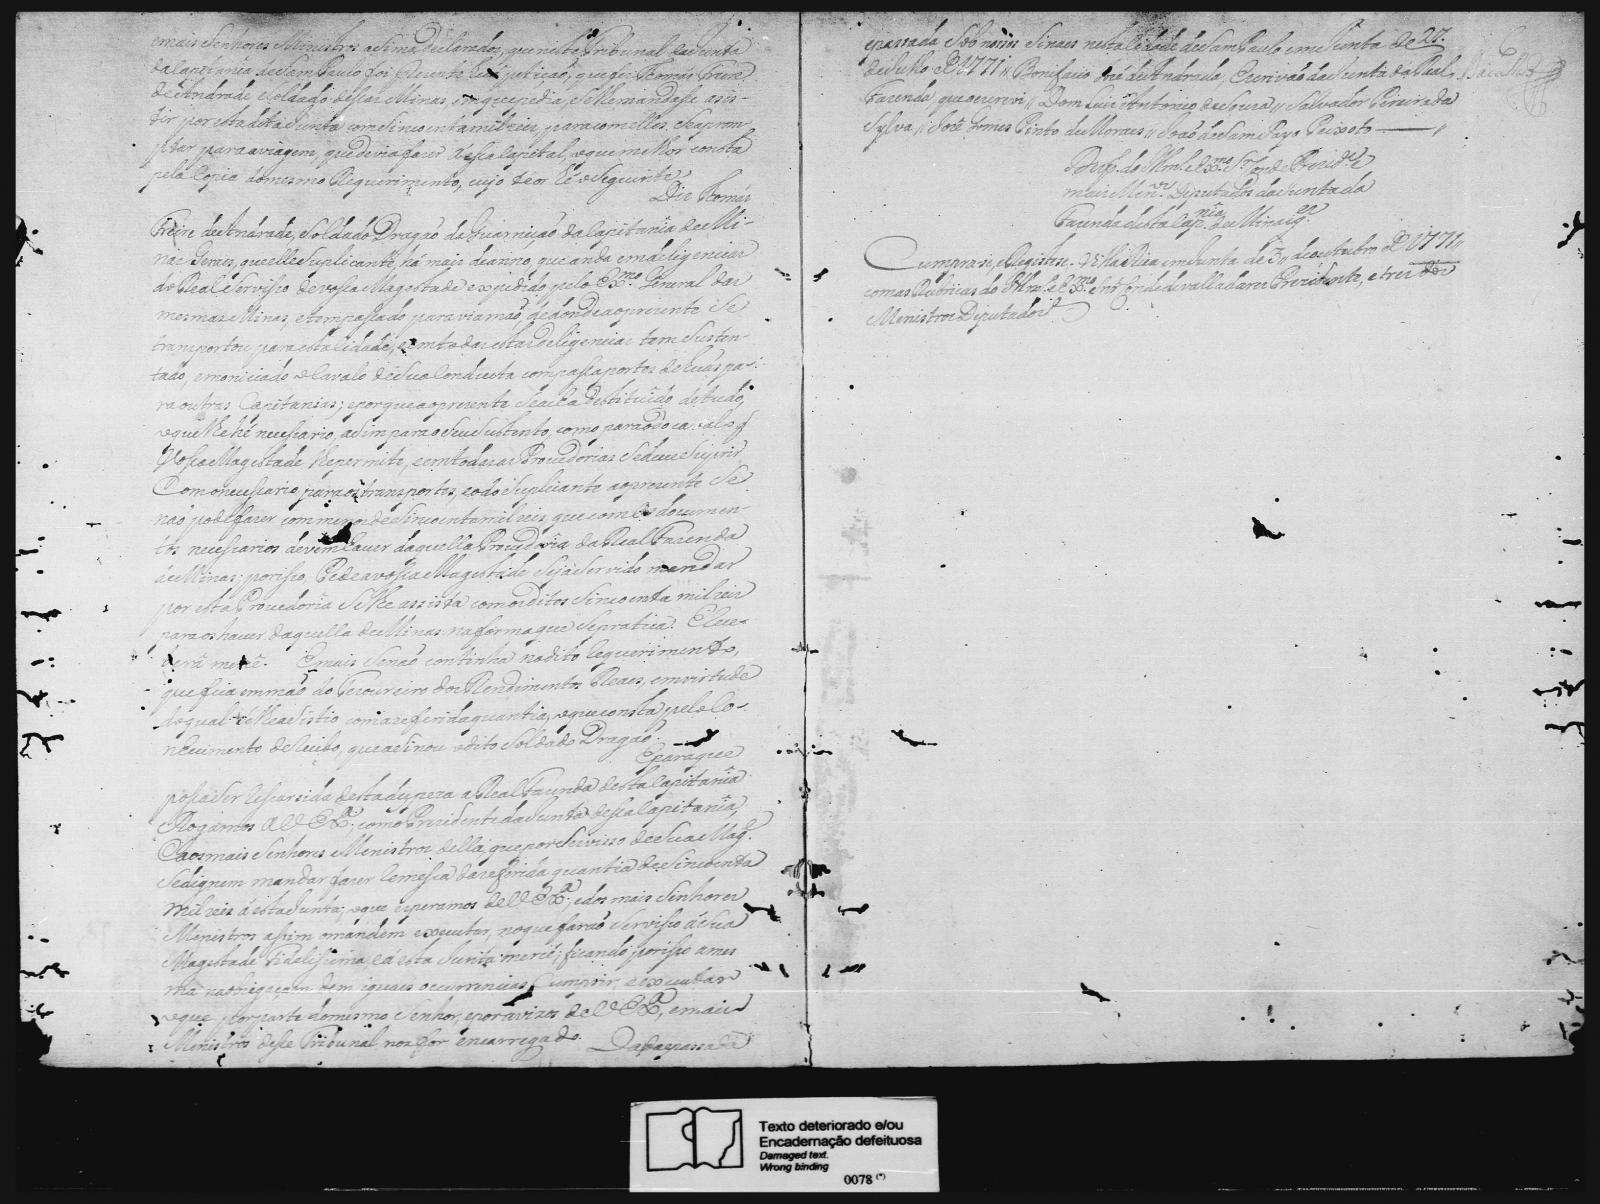 emais Senhores Ministros asima declarados, que neste Tribunal da Junta
da Capitania de Sam Paulo foi prezente a petição, que fez Tomás Freire
de Andrade Soldado dessas Minas, em que pedia, se lhe mandasse asis-
tir por esta dita Junta com Sincoenta mil reis, para com elles se apron-
ptar para a viagem, que devia fazer dessa Capital, o que milhor consta
pela Copia do mesmo Requerimento, cujo teor hé o Seguinte
Diz Tomás
Freire de Andrade, Soldado Dragaõ da Guarniçaõ da Capitania de Mi-
nas Geraes, que elle Suplicante, há mais de anno, que anda em deligencias
do Real Serviso de vosa Magestade expedido pelo Ex.mo General das
mesmas Minas, e tem pasado para viamaõ de donde ao prezente Se
transportou para esta Cidade, e em todas estas deligencias tem Susten-
tado, e municiado o Cavalo de Sua Conducta com pasaportes de huãs pa-
ra outras Capitanias; e porque ao prezente Se acha destituido de tudo,
o que lhe hé necesario, asim para o Seu Sustento, como para o do Cavalo q
Vosa Magestade lhe permite, e em todas as Provedorias Se deve Suprir
Com o necesario para os transportes, e o do Suplicante ao prezente Se
naõ pode fazer com menos de Sincoenta mil reis que com os documen-
tos necesarios devem haver daquella Provedoria da Real Fazenda
de Minas; por iso, Pede a vosa Magestade Seja Servido mandar
por esta Provedoria Se lhe assista com os ditos Sincoenta mil reis
para os haver daquella de Minas na forma que Se pratica. E Rece-
berá mercê. E mais Senaõ continha no dito Requerimento,
que fica em maõ do Tezoureiro dos Rendimentos Reaes, em virtude
do qual Se lhe asistio com a referida quantia, o que consta pelo Co-
nhecimento de recibo, que asinou o dito Soldado Dragaõ.
E para que
posa Ser Resarsida desta despeza a Real Fazenda desta Capitania
Rogamos a V Ex.a, como Prezidente da Junta dessa Capitania,
E aos mais Senhores Ministros della, que por Serviso de Sua Mag.e
Se dignem mandar fazer Remesa da referida quantia de Sincoenta
mil reis a esta Junta; o que esperamos de V Ex.a, e dos mais Senhores
Ministros assim o mandem executar, no que faraõ Serviso a Sua
Magestade Fidelissima, e a esta Junta mercê; ficando por iso a mes
ma na obrigaçam de em iguaes occurrencias Cumprir, e executar
o que por parte do mesmo Senhor, e por avizos de V Ex.a, e mais
Ministros dese Tribunal nos for encarregado. Dada e passada
e passada Sob nosos Sinaes nesta Cidade de Sam Paulo em Junta de 27.
de Julho de 1771 // Bonifacio José de Andrada, Escrivaõ da Junta da Real
Fazenda, que o escrevi // Dom Luiz Antonio de Souza // Salvador Pereira da
Sylva // José Gomes Pinto de Moraes // Joaõ de Sam Payo Peixoto //
6
Desp. do Illm.o e Ex.mo S.r Conde Prezid.e e
mais Men.os Deputados da Junta da
Fazenda desta Cap.nia de Minas G.s
Cumprase, e Registese. Villa Rica em Junta de 3 de outubro de 1771 //
com as Rubricas do Illmo. e Ex.mo Snr Conde de Valladares Prezidente, e tres dos
Menistros Deputados
Texto deteriorado e/ou
Encadernação defeituosa
Damaged text.
Wrong binding
0078 (*)